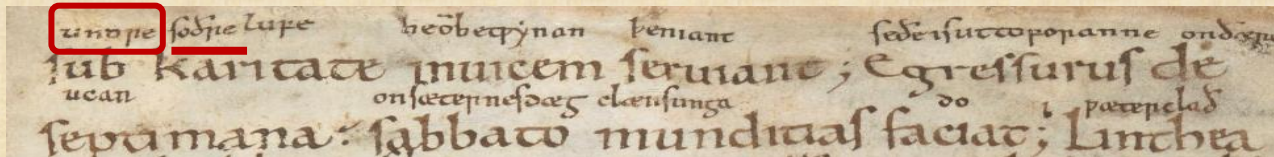 undre soðre lufe heōbetƿynan þeniant seðe isuttofaranne ondære
sub karitate inuicem seruiant; Egressurus de
ucan onsæternesdæg clænsunga do ƿæterclað
septimana. sabbato munditias faciat; Linthea